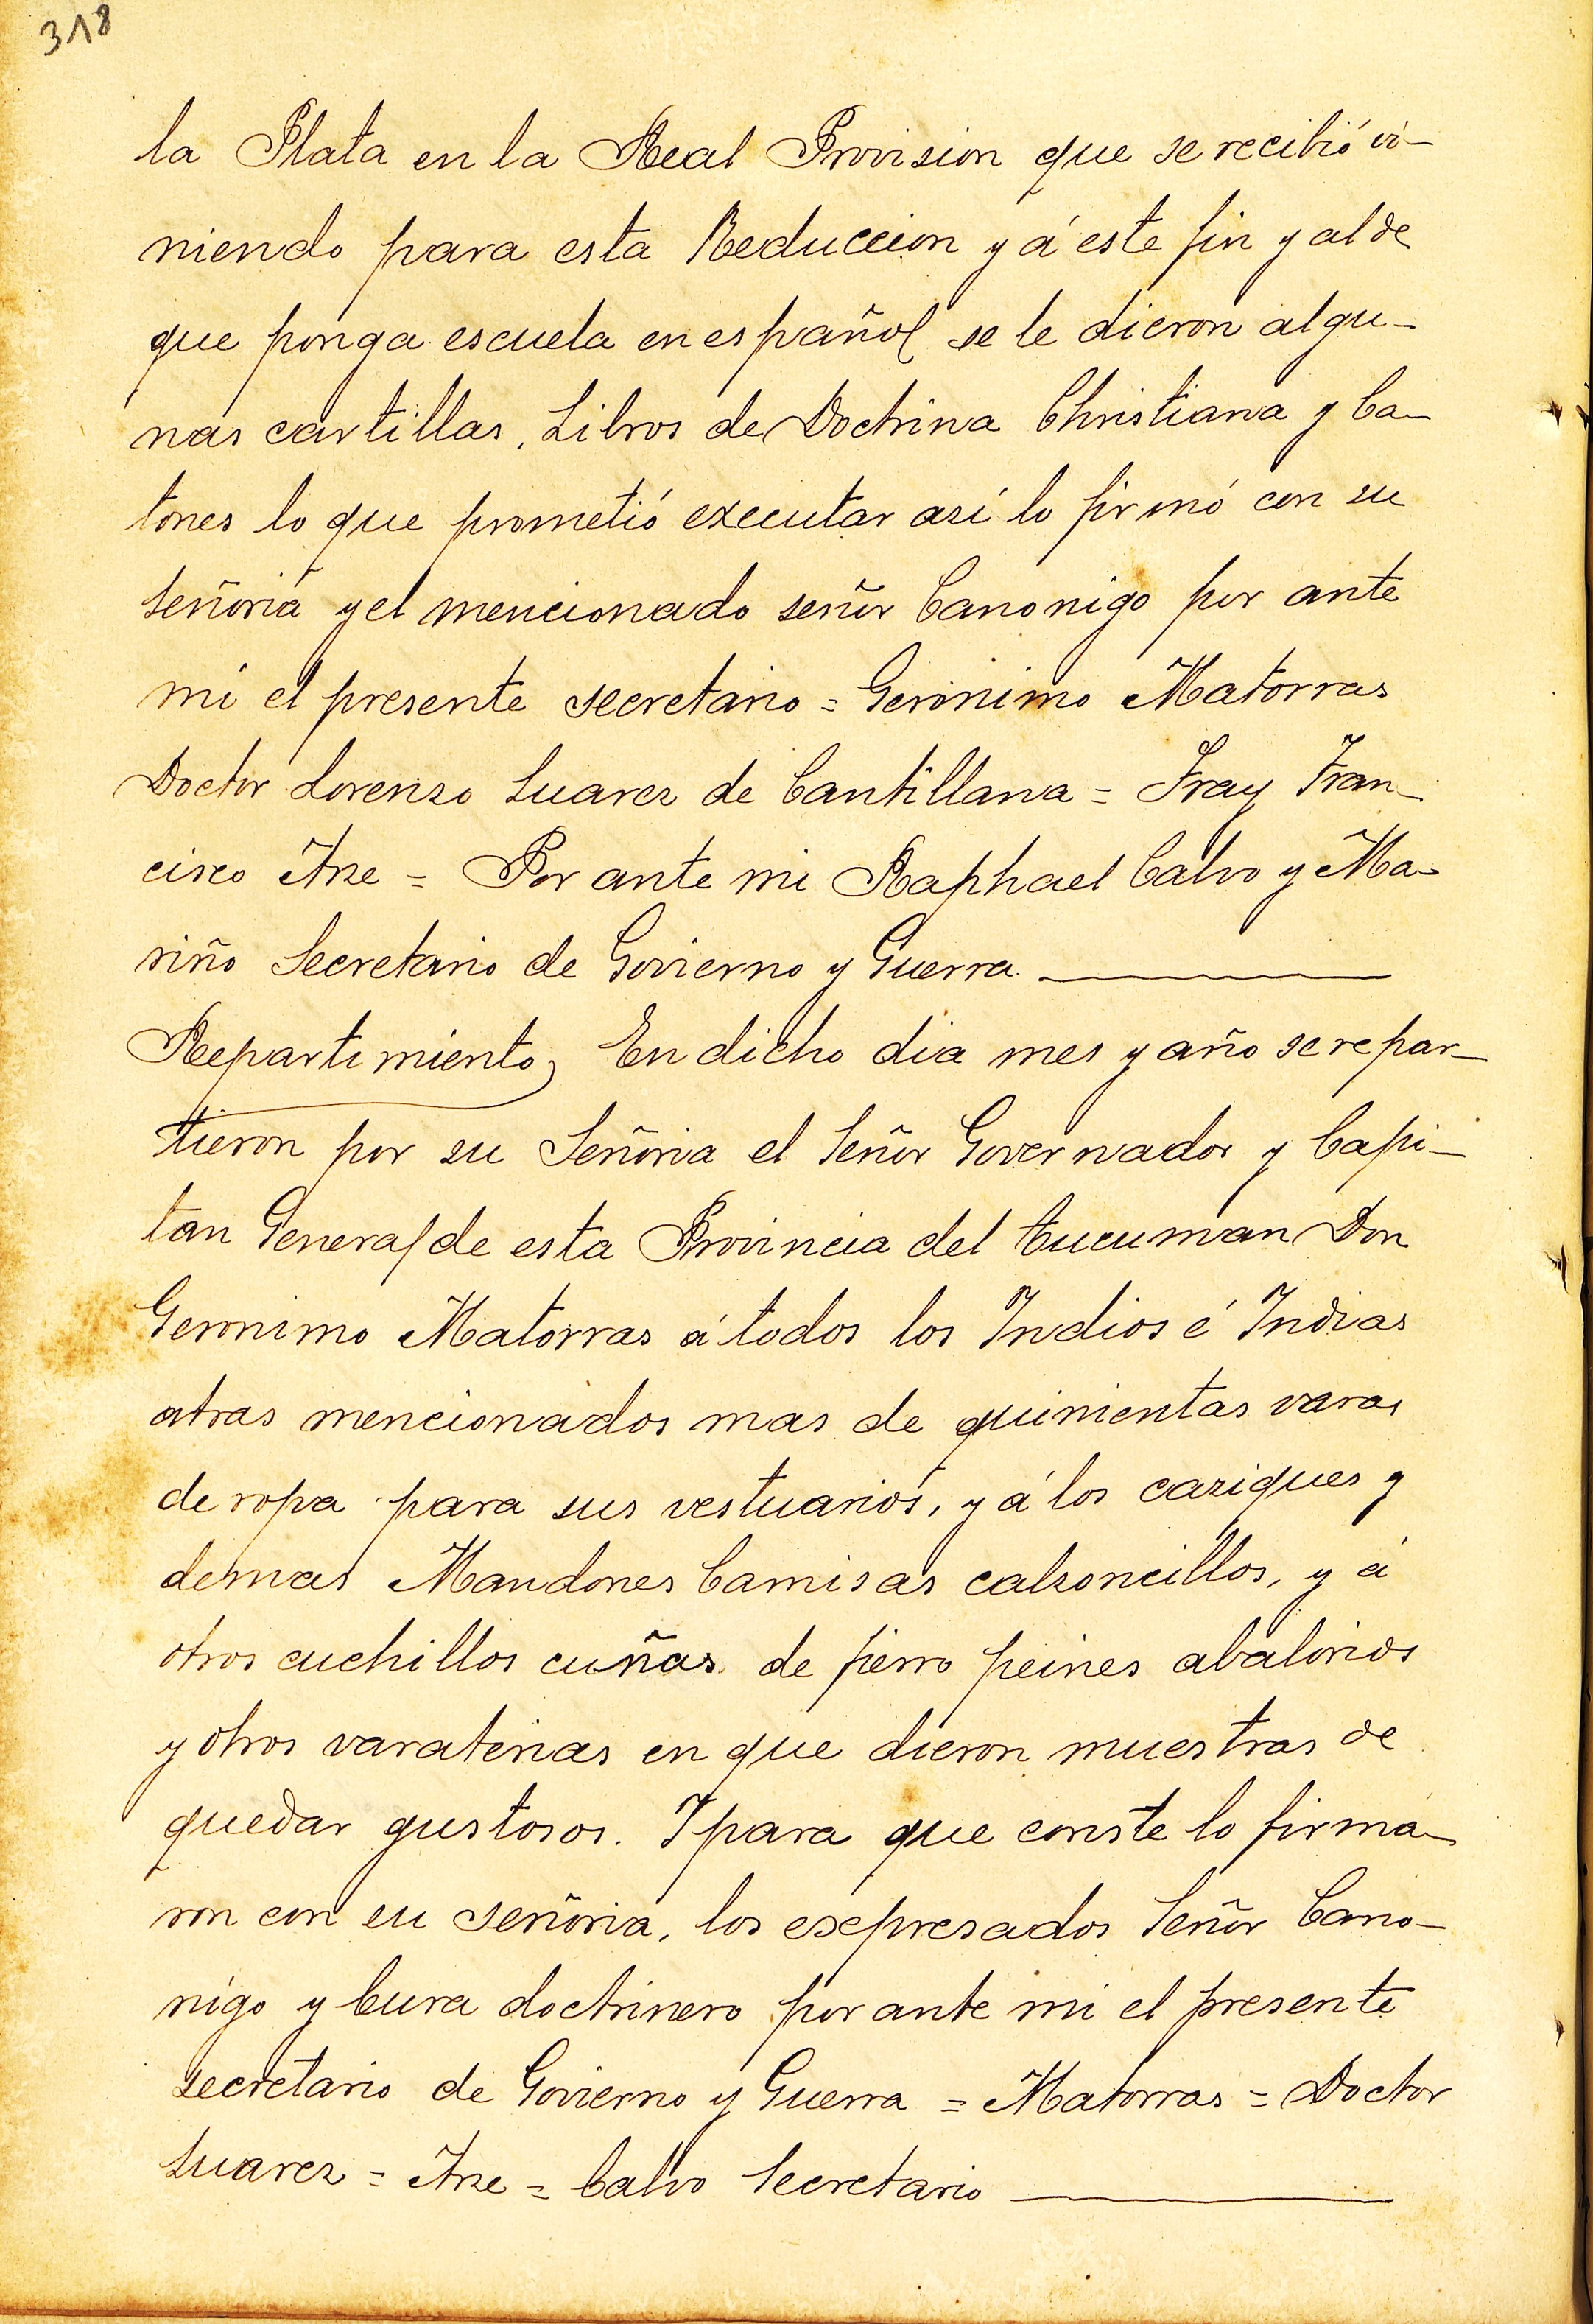 318
la Plata en la Real Provision que se recibió vi-
niendo para esta Reduccion y á este fin y al de
que ponga escuela en español se le dieron algu-
nas cartillas, Libros de Doctrina Christiana y Ca-
tones lo que prometió executar así lo firmó con su
Señoria y el mencionado señor Canonigo por ante
mi el presente secretario = Geronimo Matorras
Doctor Lorenzo Suarez de Cantillana = Fray Fran-
cisco Arze = Por ante mi Raphael Calvo y Ma-
riño Secretario de Govierno y Guerra.
Repartimiento, En dicho dia mes y año se repar-
tieron por su Señoria el Señor Governador y Capi-
tan General de esta Provincia del Tucuman Don
Geronimo Matorras á todos los Indios é Indias
atras mencionados mas de quinientas varas
de ropa para sus vestuarios, y á los caziques y
demas Mandones Camisas calzoncillos, y á
otros cuchillos cuñas de fierro peines abalorios
y otros varaterias en que dieron muestras de
quedar gustosos. Y para que conste lo firma-
ron con su señoria, los esepresados Señor Cano-
nigo y Cura doctrinero por ante mi el presente
secretario de Govierno y Guerra = Matorras = Doctor
Suarez = Arze = Calvo Secretario